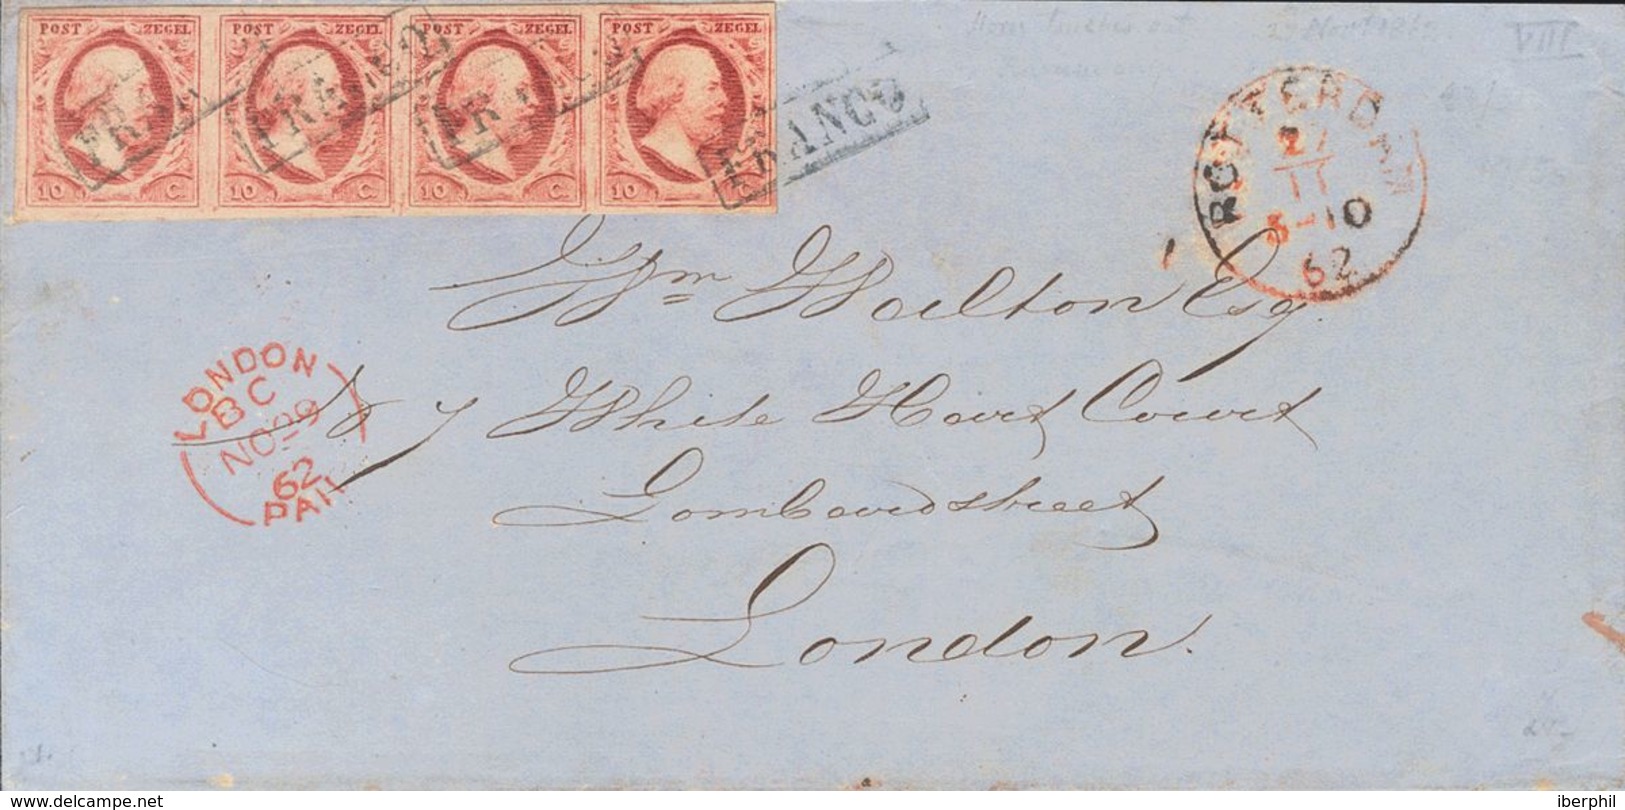 POST ZEGEL POST ZEGEL POST ZEGEL POST ZEGEL
FRANCO FRANCO FRANCO FRANCO
10 C. 10 C. 10 C. 10
VIII
ROTTERDAM
27
11
3-10
62
Wm Walton Esq.
7 White Hart Court
Lombardstreet
London.
LONDON
BC
NO 29
62
PAID
www.delcampe.net
iberphil